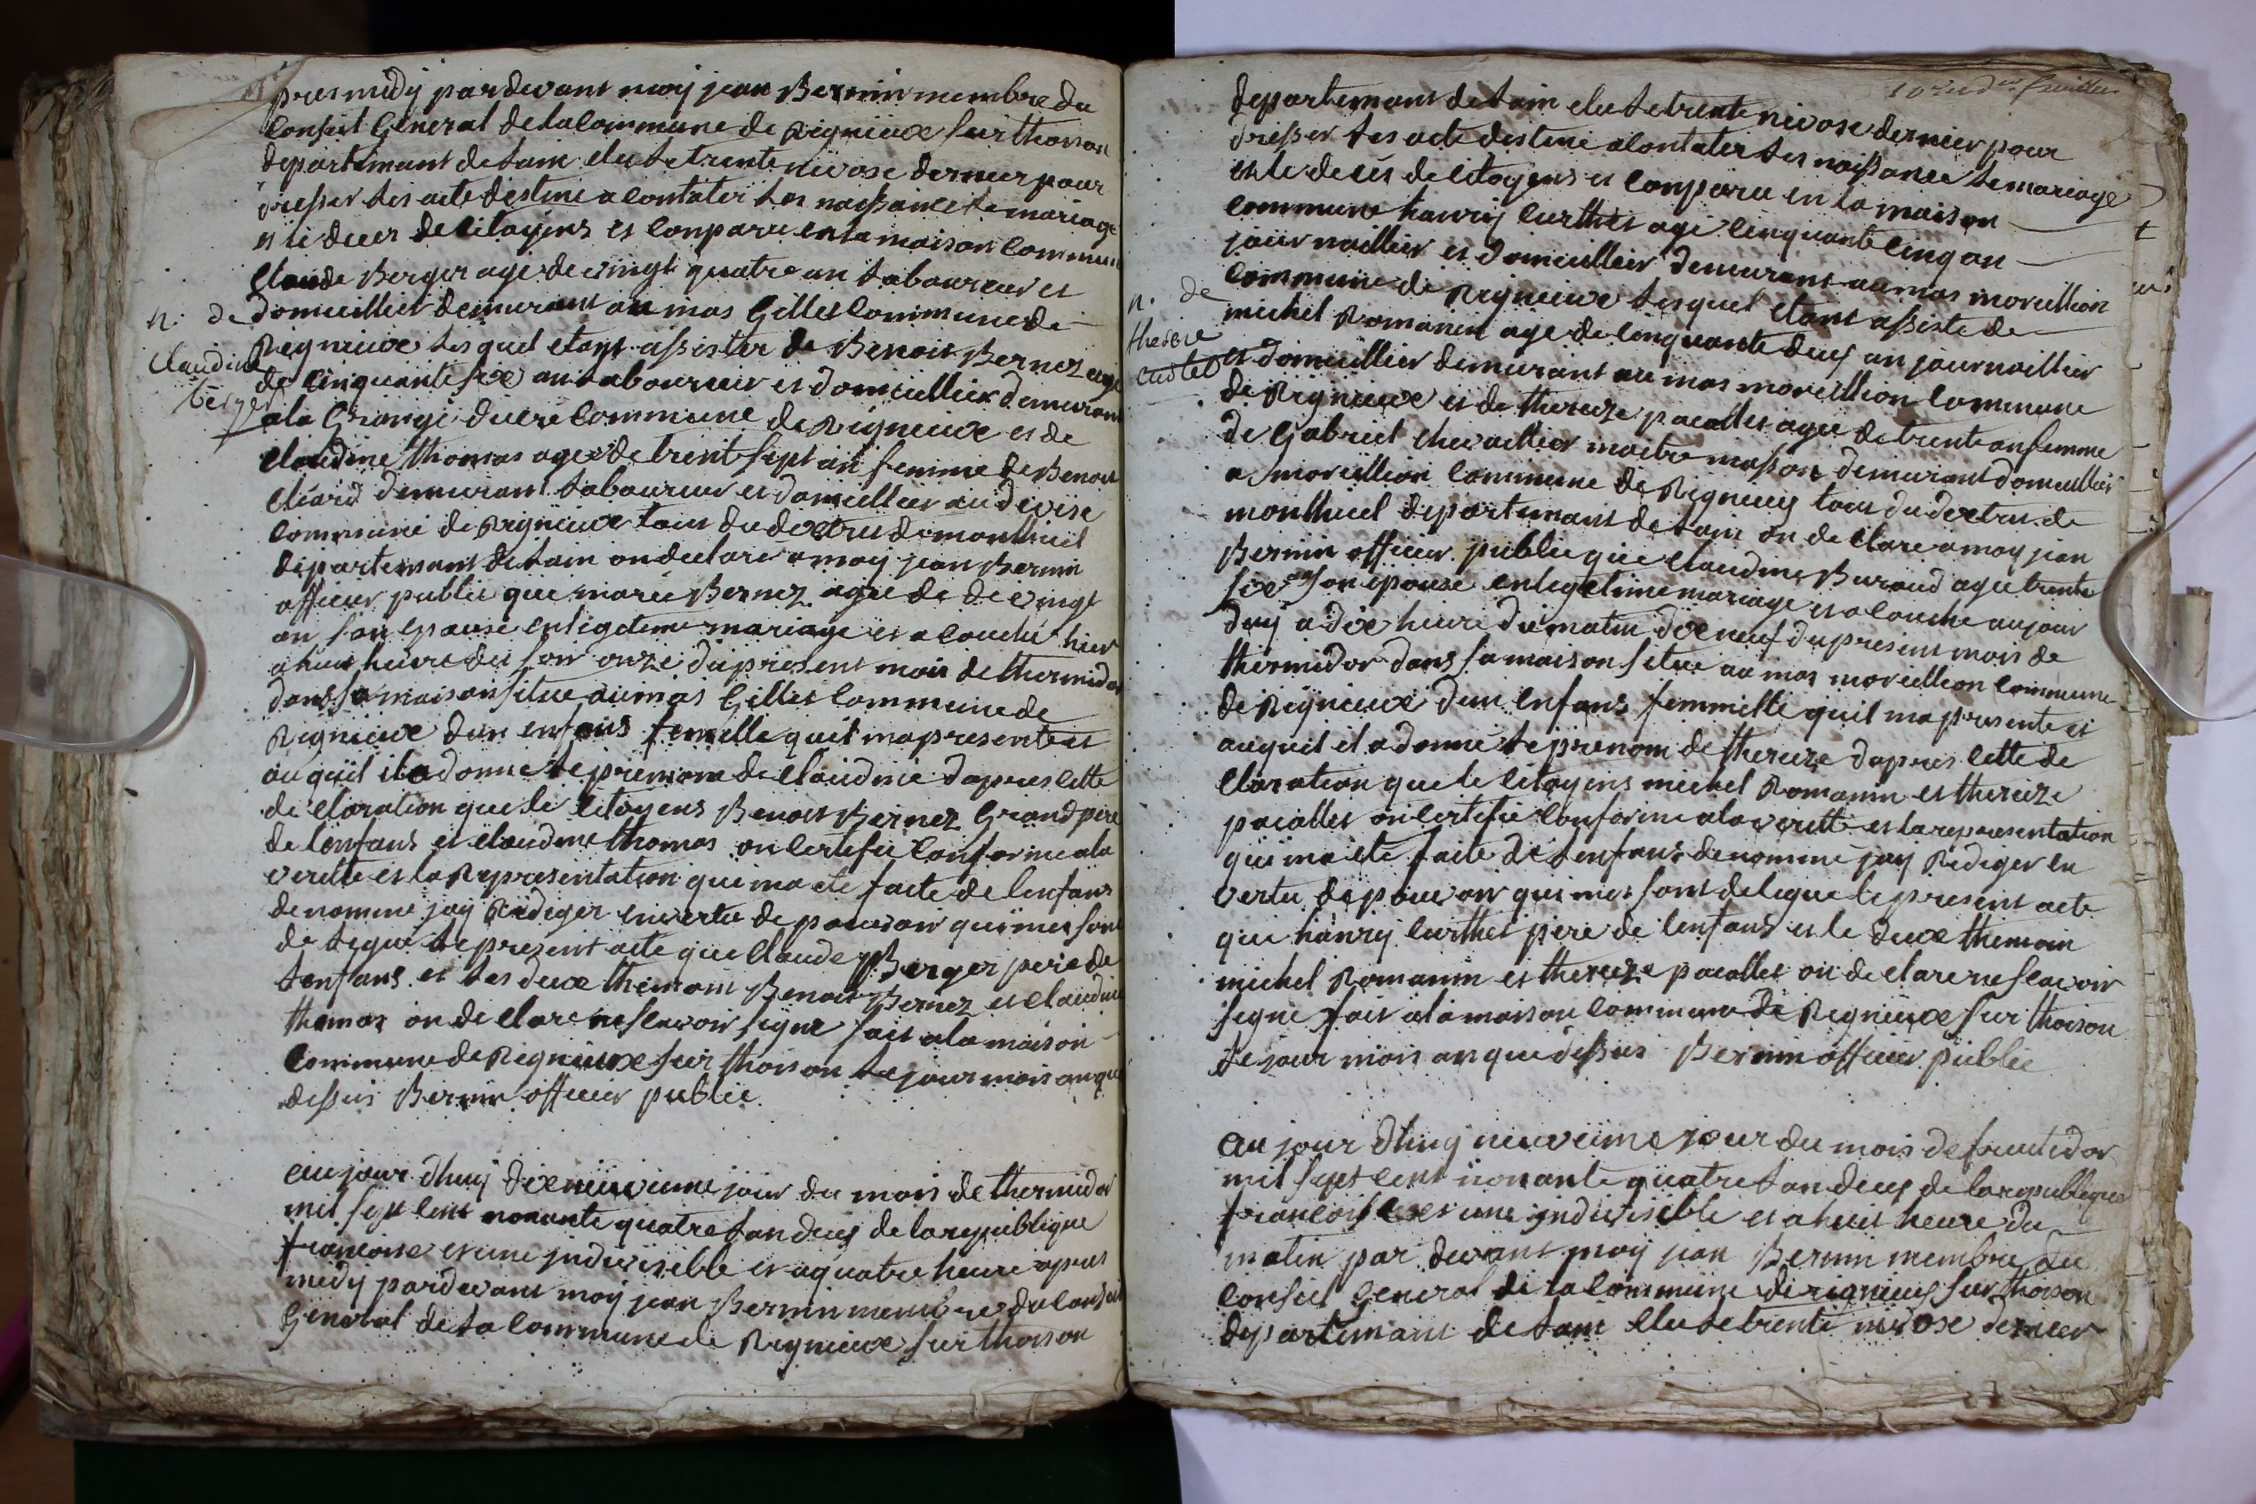 presmidy pardevant moy jean Bernin membre du
Conseil General de la Commune de Rignieux sur thoison
departemant de Lain elu le trente nivose dernier pour
dresser les acte destine a Contater les naissance le mariage
et le deces de Citoyens et Conparu en la maison Commune
Claude Berger age de vingt quatre an laboureur et
domicillier demurant au mas Gillet Commune de
Rignieux lesquel etant assister de Benoit Bernez age
de Cinquante six an laboureur et domicillier demurant
a la Grange Commune de Rignieux et de
Claudine thomas agee de trente sept an femme de Benoit
demurant laboureur et domicillier au
Commune de Rignieux tous du dextrit de montluel
departemant de Lain on declare a moy jean Bernin
officier public que marie Bernez agee de de vingt
an son epouse en legetime mariage et a Couché hier
a huit heure du soir onze du present mois de thermidor
dans sa maison situe au mas Gillet Commune de
Rignieux dun enfans femelle quil ma presente et
auquil il a donne le prenom de Claudine dapres Cette
de Claration que le Citoyens Benoit Bernez Grand pere
de lenfans et Claudine thomas on Certifie Conforme a la
veritte et la Representation qui ma ete faite de lenfans
denomme jay Rediger en vertu de pouvoir qui mes sont
de legue le present acte que Claude Berger pere de
lenfans et les deux themoin Benoit Bernez et Claudine
thomas on de Clare ne scavoir signe fait a la maison
Commune de Rignieux sur thoison le jour mois an que
dessus Bernin officier public
n. de
Claudine
berger
aujour dhuy dixneuvieme jour du mois de thermidor
mil sept Cent nonante quatre lan deuz de la republique
francoise et une jndivisible et a quatre heure apres
midy pardevant moy jean Bernin membre du Conseil
General de la Commune de Rignieux sur thoison
departemant de Lain elu le trente nivose dernier pour
dresser les acte destine a Contater les naissance le mariage
et le deces de Citoyens et Conparu en la maison
Commune hanrij Curthet age Cinquante Cinq an
journaillier et domicillier demurant au mas moreillion
Commune de Rignieux lesquel etant assiste de
michel Romanin age de Cinquante deuz an journaillier
et domicillier demurant au mas moreillion Commune
de Rignieux et de thereze pacallet agee de trente an femme
de Gabriel Chevaillier maitre masson demurant domicillier
a moreillion Commune de Rignieuz tous du dextrit de
montluel departemant de Lain on de Clare a moy jean
Bernin officier public que Claudine Buraud agee trente
six an son epouse en legetime mariage et a Couche aujour
duy a dix heure du matin dix neuf du present mois de
thermidor dans sa maison situe au mas moreillion Commune
de Rignieux dun enfans femmelle quil ma presente et
auquil el a donne le prenom de thereze dapres Cette de
Claration que le Citoyens michel Romanin et thereze
pacallet on Certifie Conforme a la veritte et la representation
qui ma ete faite de lenfans denomme jay Rediger en
vertu de pouvoir qui mes sont delegue le present acte
que hanrij Curthet pere de lenfans et le deux themoin
michel Romanin et thereze pacallet on de Clare ne scavoir
signe fait a la maison Commune de Rignieux sur thoison
le jour mois an que dessus Bernin officier public
n. de
therese
curtet
aujour dhuy neuvieime jour du mois de fructidor
mil sept Cent nonante quatre lan deuz de la republique
francoise et une jndivisible et a huit heure du
matin par devant moy jean Bernin membre du
Conseil General de la Commune de rignieuz sur thoison
departemant de Lain elu le trente nivose dernier